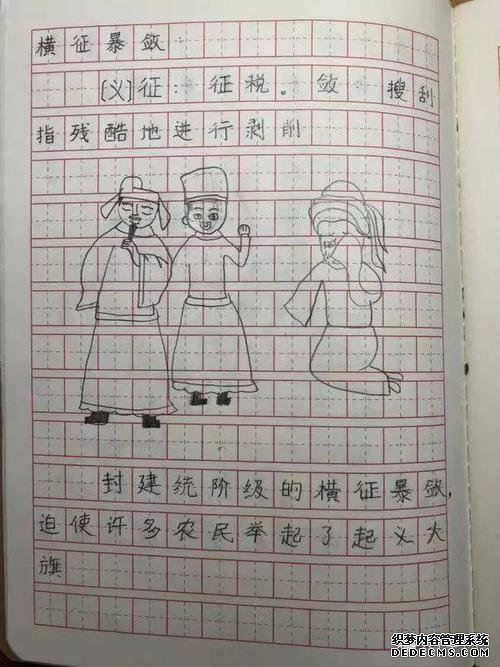 横征暴敛:
[义]征:征税。敛:搜刮
指残酷地进行剥削
封建统阶级的横征暴敛,
迫使许多农民举起了起义大
旗
织梦内容管理系统
DEDECMS.COM